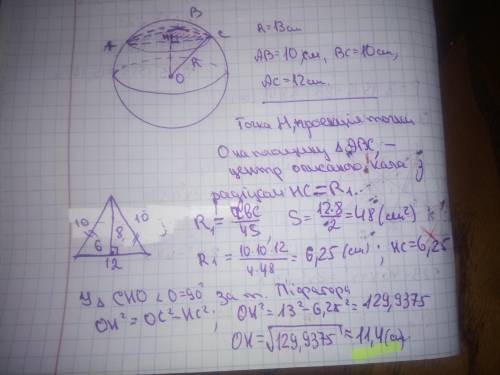 B
A
C
H
R
O
R=13см
AB=10см, BC=10см,
AC=12см.
Точка H, проекція точки
О на площину △ABC, —
центр описаного кола з
радіусом HC=R₁.
10
10
8
6
12
R₁ = abc/4S   S = 12·8/2 = 48 (см²)
R₁ = 10·10·12/4·48 = 6,25 (см); HC=6,25
У △ CHO <O=90° За т. Піфагора
OH²=OC²-HC²; OH²=13²-6,25²=129,9375
OH=√129,9375 ≈ 11,4(см)